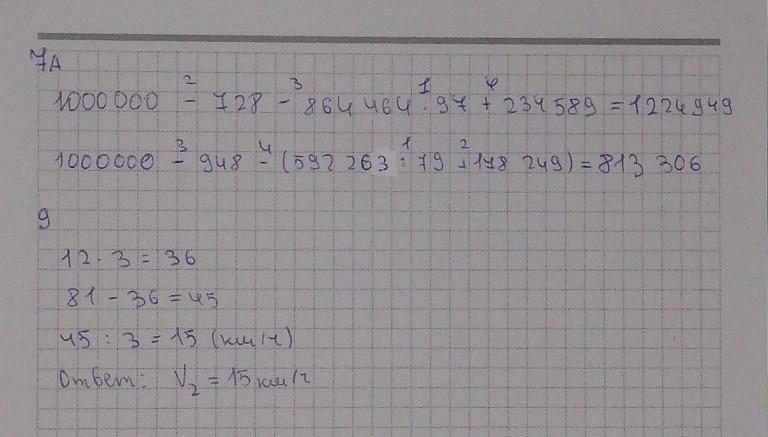 7А
1000000 - 728 - 864 464 : 97 + 234 589 = 1224949
1000000 - 948 - (592 263 : 79 + 178 249) = 813 306
9
12 · 3 = 36
81 - 36 = 45
45 : 3 = 15 (км/ч)
Ответ: V2 = 15 км/ч